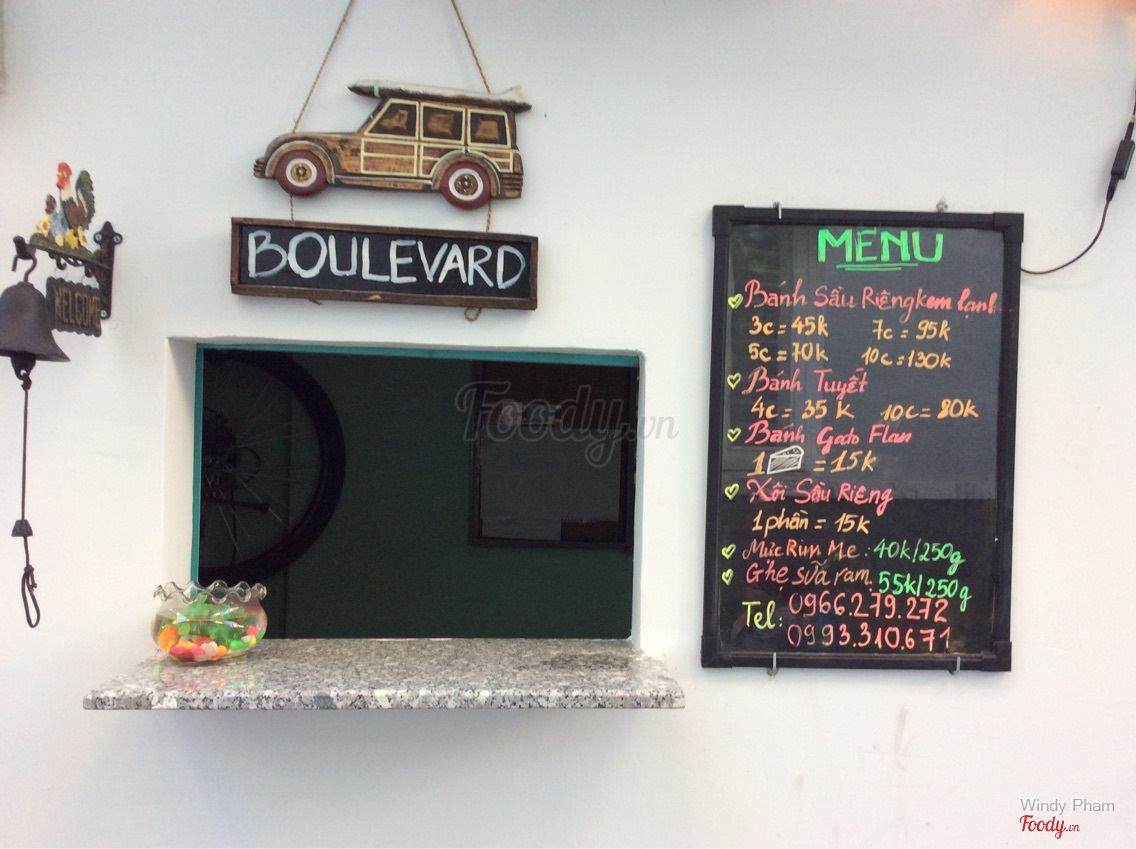 BOULEVARD
WELCOME
MENU
Bánh Sầu Riêng kem lạnh
3c = 45k 7c = 95k
5c = 70k 10c = 130k
Bánh Tuyết
4c = 35k 10c = 80k
Bánh Gato Flan
1 = 15k
Xôi Sầu Riêng
1 phần = 15k
Mực Rim Me: 40k/250g
Ghẹ sữa ram. 55k/250g
Tel: 0966.279.272
0993.310.671
Foody.vn
Windy Pham
Foody.vn